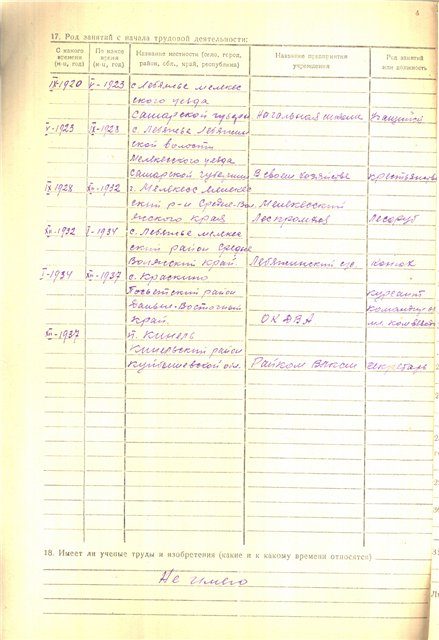 4
17. Род занятий с начала трудовой деятельности:
С какого времени (м-ц, год) По какое время (м-ц, год) Название местности (село, город, район, обл., край, республика) Название предприятия учреждения Род занятий или должность
IX-1920 V-1923 с Лебяжье Мелекес
ского уезда
Самарской губернии Начальная школа Учащийся
V-1923 IX-1928 с. Лебяжье Лебяжин
ской волости
Мелекесского уезда
Самарской губернии В своем хозяйстве крестьянин
IX 1928 1932 г. Мелекесс Мелекес
ский р-н Средне-Вол Мелекесский
жского края Леспромхоз Лесоруб
1932 I-1934 с. Лебяжье Мелек
ский район Средне
Волжский край. Лебяжинский конюх
I-1934 XII-1937 с. Краскино
Посьетский район курсант
Дальне-Восточный командир
край. ОКДВА мл. комвзвод
XII-1937 п. Кинель
Кинельский район
Куйбышевской обл. Райком ВЛКСМ секретарь
18. Имеет ли ученые труды и изобретения (какие и к какому времени относятся)
Не имею